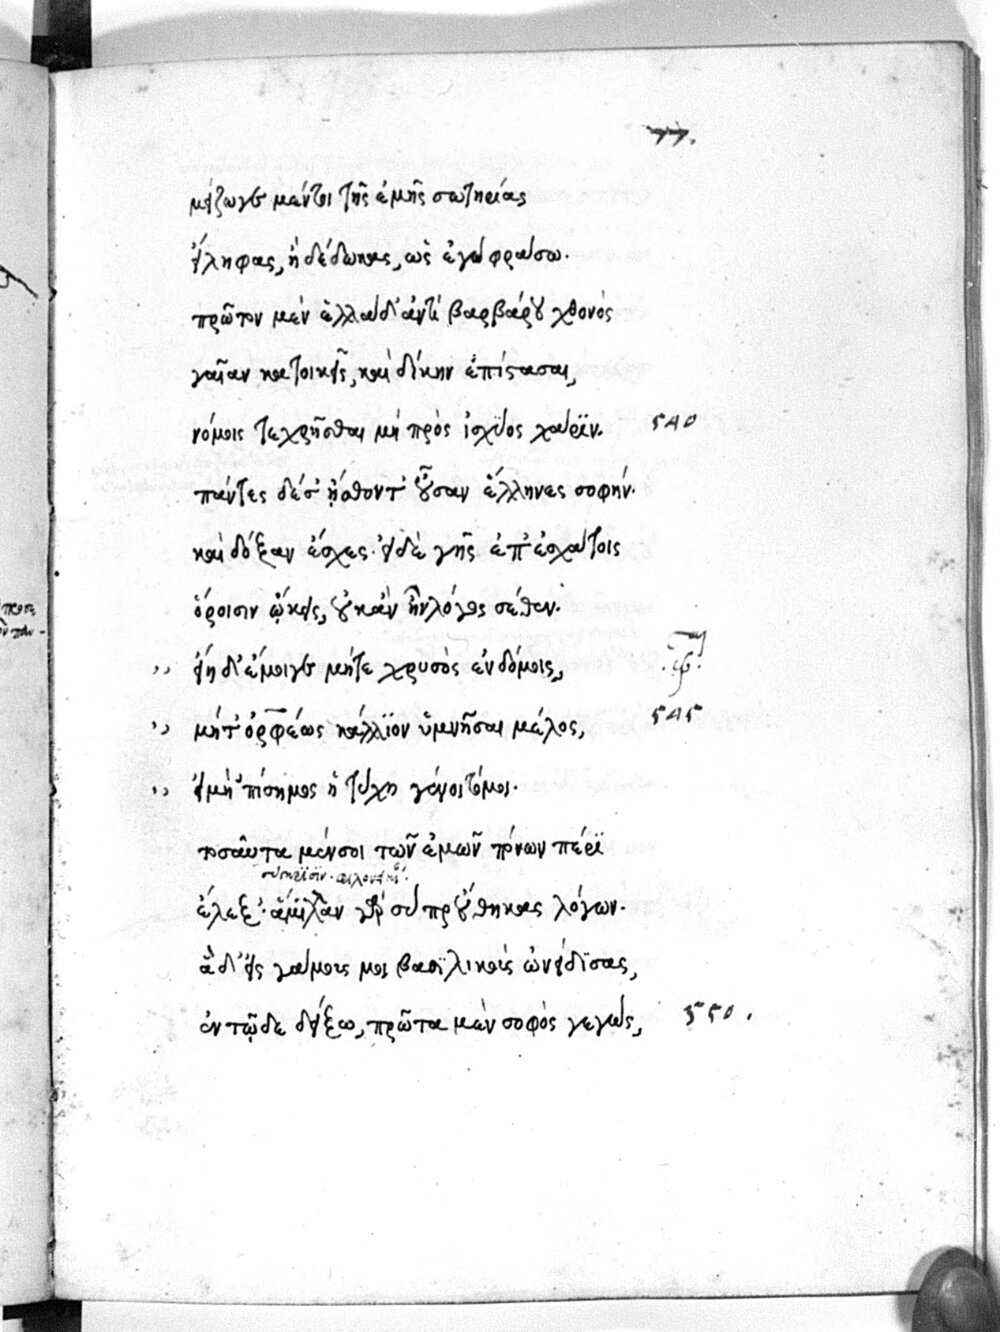 77.
μείζω γε μέντοι τῆς ἐμῆς σωτηρίας
εἴληφας, ἢ δέδωκας, ὡς ἐγὼ φράσω.
πρῶτον μὲν ἑλλάδ' ἀντὶ βαρβάρου χθονὸς
γαῖαν κατοικεῖς, καὶ δίκην ἐπίστασαι,
νόμοις τε χρῆσθαι μὴ πρὸς ἰσχύος χάριν. 540
πάντες δέ σ' ᾔσθοντ' οὖσαν ἕλληνες σοφήν.
καὶ δόξαν ἔσχες. εἰ δὲ γῆς ἐπ' ἐσχάτοις
ὅροισιν ᾤκεις, οὐκ ἂν ἦν λόγος σέθεν.
,, εἴη δ' ἔμοιγε μήτε χρυσὸς ἐν δόμοις,
,, μήτ' ὀρφέως κάλλϊον ὑμνῆσαι μέλος, 545
,, εἰ μὴ 'πίσημος ἡ τύχη γένοιτό μοι.
τοσαῦτα μέν σοι τῶν ἐμῶν πόνων πέρϊ
ἔλεξ'. ἅμιλλαν γὰρ σὺ προὔθηκας λόγων.
ἃ δ' εἰς γάμους μοι βασϊλικοὺς ὠνείδϊσας,
ἐν τῷδε δείξω, πρῶτα μὲν σοφὸς γεγώς, 550.